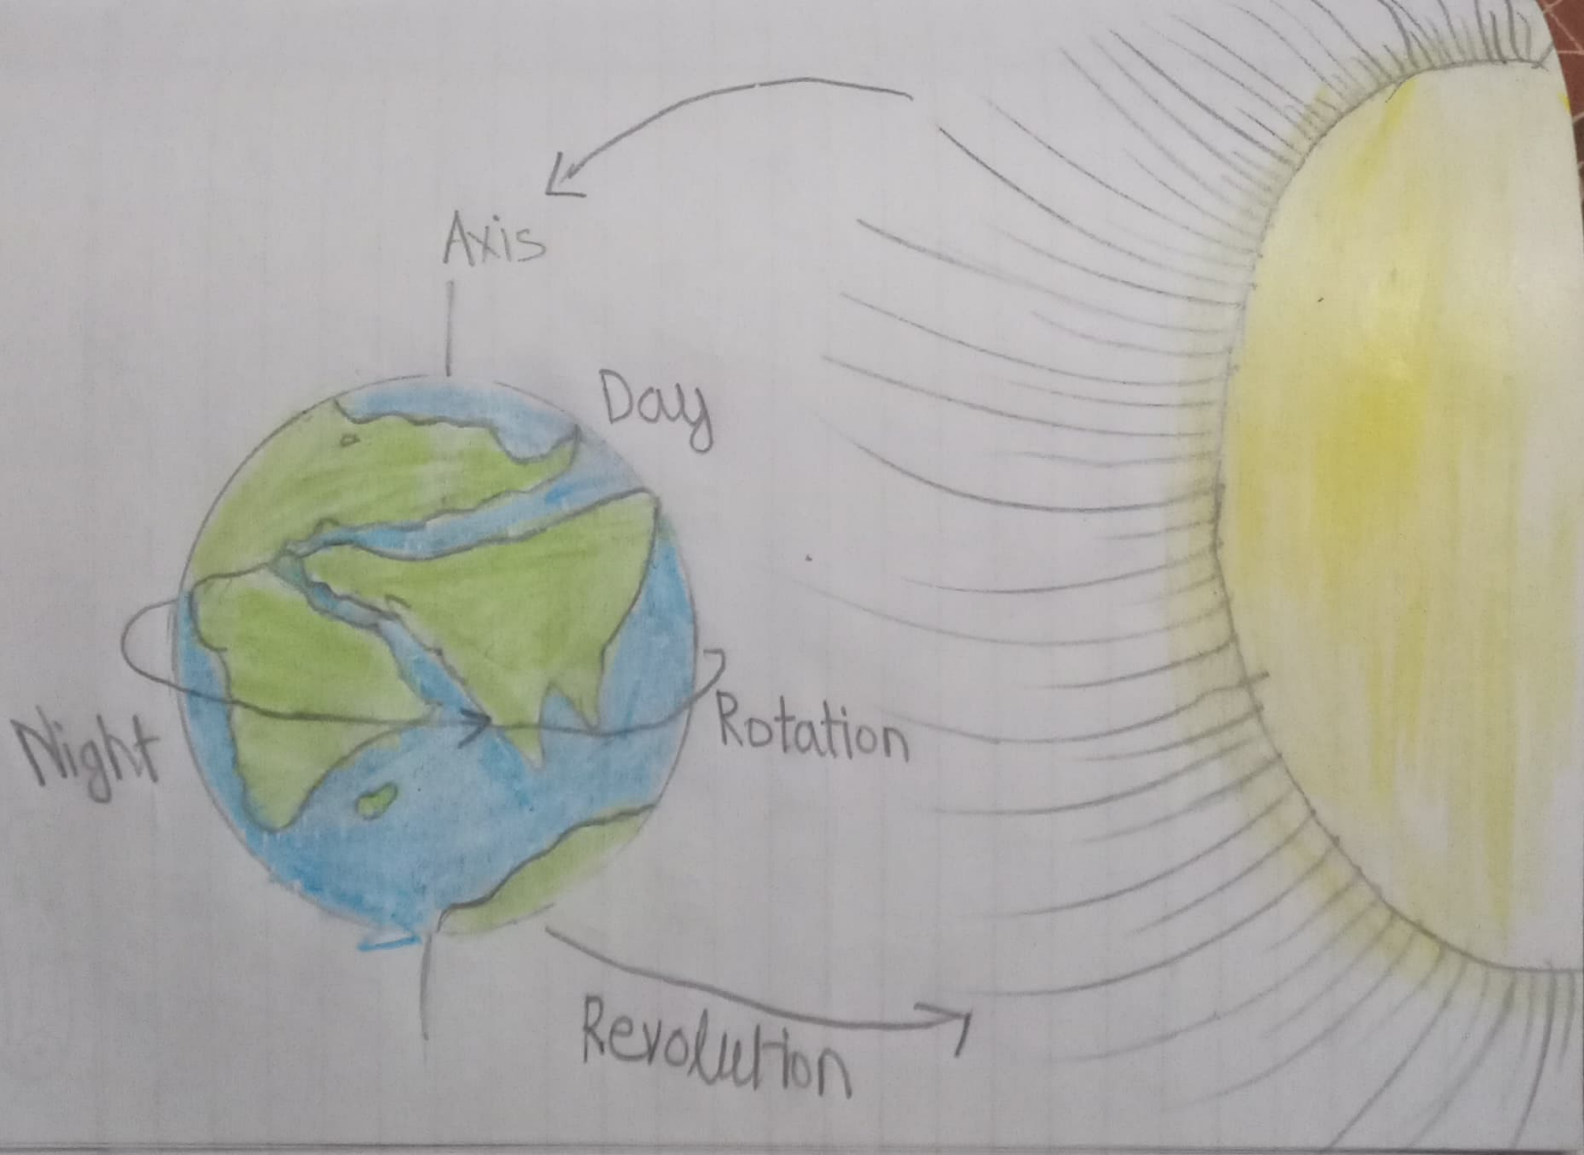 Axis
Day
Night
Rotation
Revolution